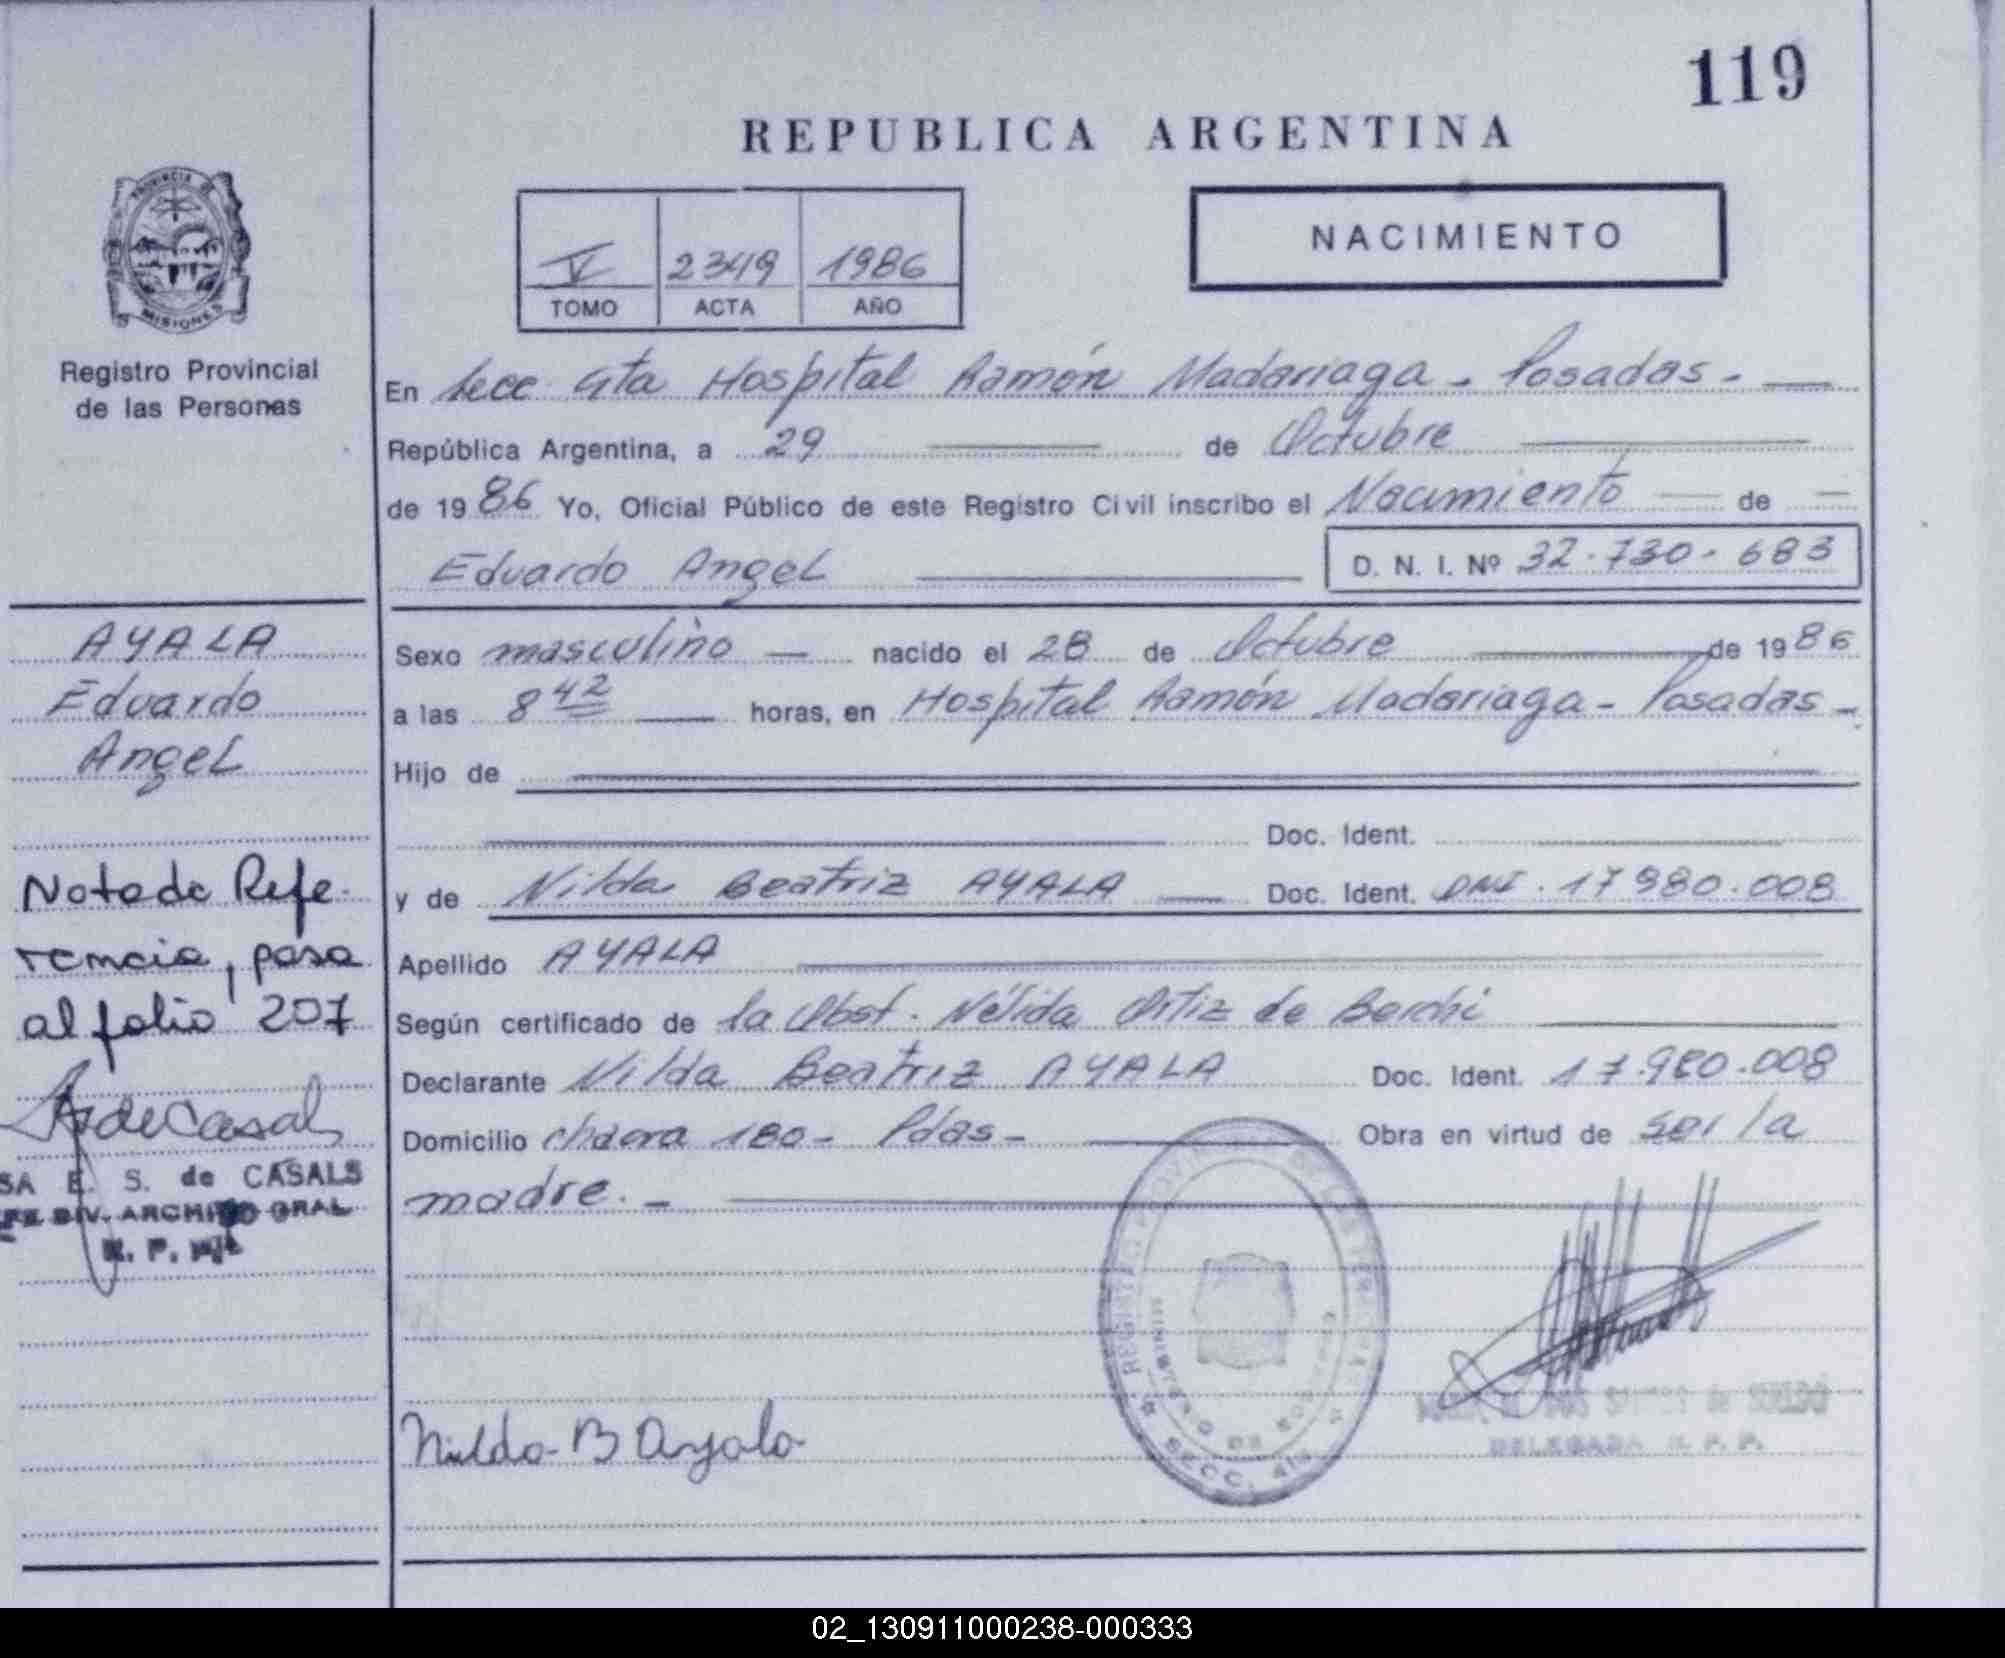 119
REPUBLICA ARGENTINA
PROVINCIA DE
MISIONES
V 2349 1986
TOMO ACTA AÑO
NACIMIENTO
Registro Provincial
de las Personas
En Secc 4ta Hospital Ramón Madariaga - Posadas -
República Argentina, a 29 de Octubre
de 1986 Yo, Oficial Público de este Registro Civil inscribo el Nacimiento de
Eduardo Angel D. N. I. Nº 32.730.683
AYALA
Eduardo
Angel
Sexo masculino nacido el 28 de Octubre de 1986
a las 8 42 horas, en Hospital Ramón Madariaga - Posadas -
Hijo de
Doc. Ident.
y de Nilda Beatriz AYALA Doc. Ident. DNI. 17980.008
Apellido AYALA
Según certificado de la Obst. Nélida Ortiz de
Declarante Nilda Beatriz AYALA Doc. Ident. 17.980.008
Domicilio chacra 180 - Pdas - Obra en virtud de ser la
madre. -
Nota de Refe-
rencia, pasa
al folio 207
SA E. S. de CASALS
DIV. ARCHIVO GRAL
R. P.
REGISTRO PROVINCIAL DE LAS PERSONAS
MINISTERIO DE GOBIERNO
SECC. 4ta
DELEGADA R. P. P.
Nilda B Ayala
02_130911000238-000333